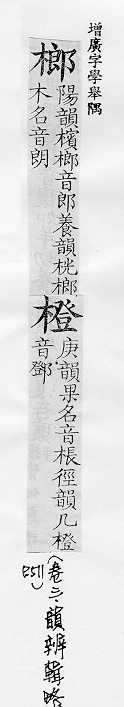 增廣字學舉隅
榔陽韻檳榔音郎養韻桄榔
木名音朗
橙庚韻果名音棖徑韻几橙
音鄧
(卷三、韻辨輯略